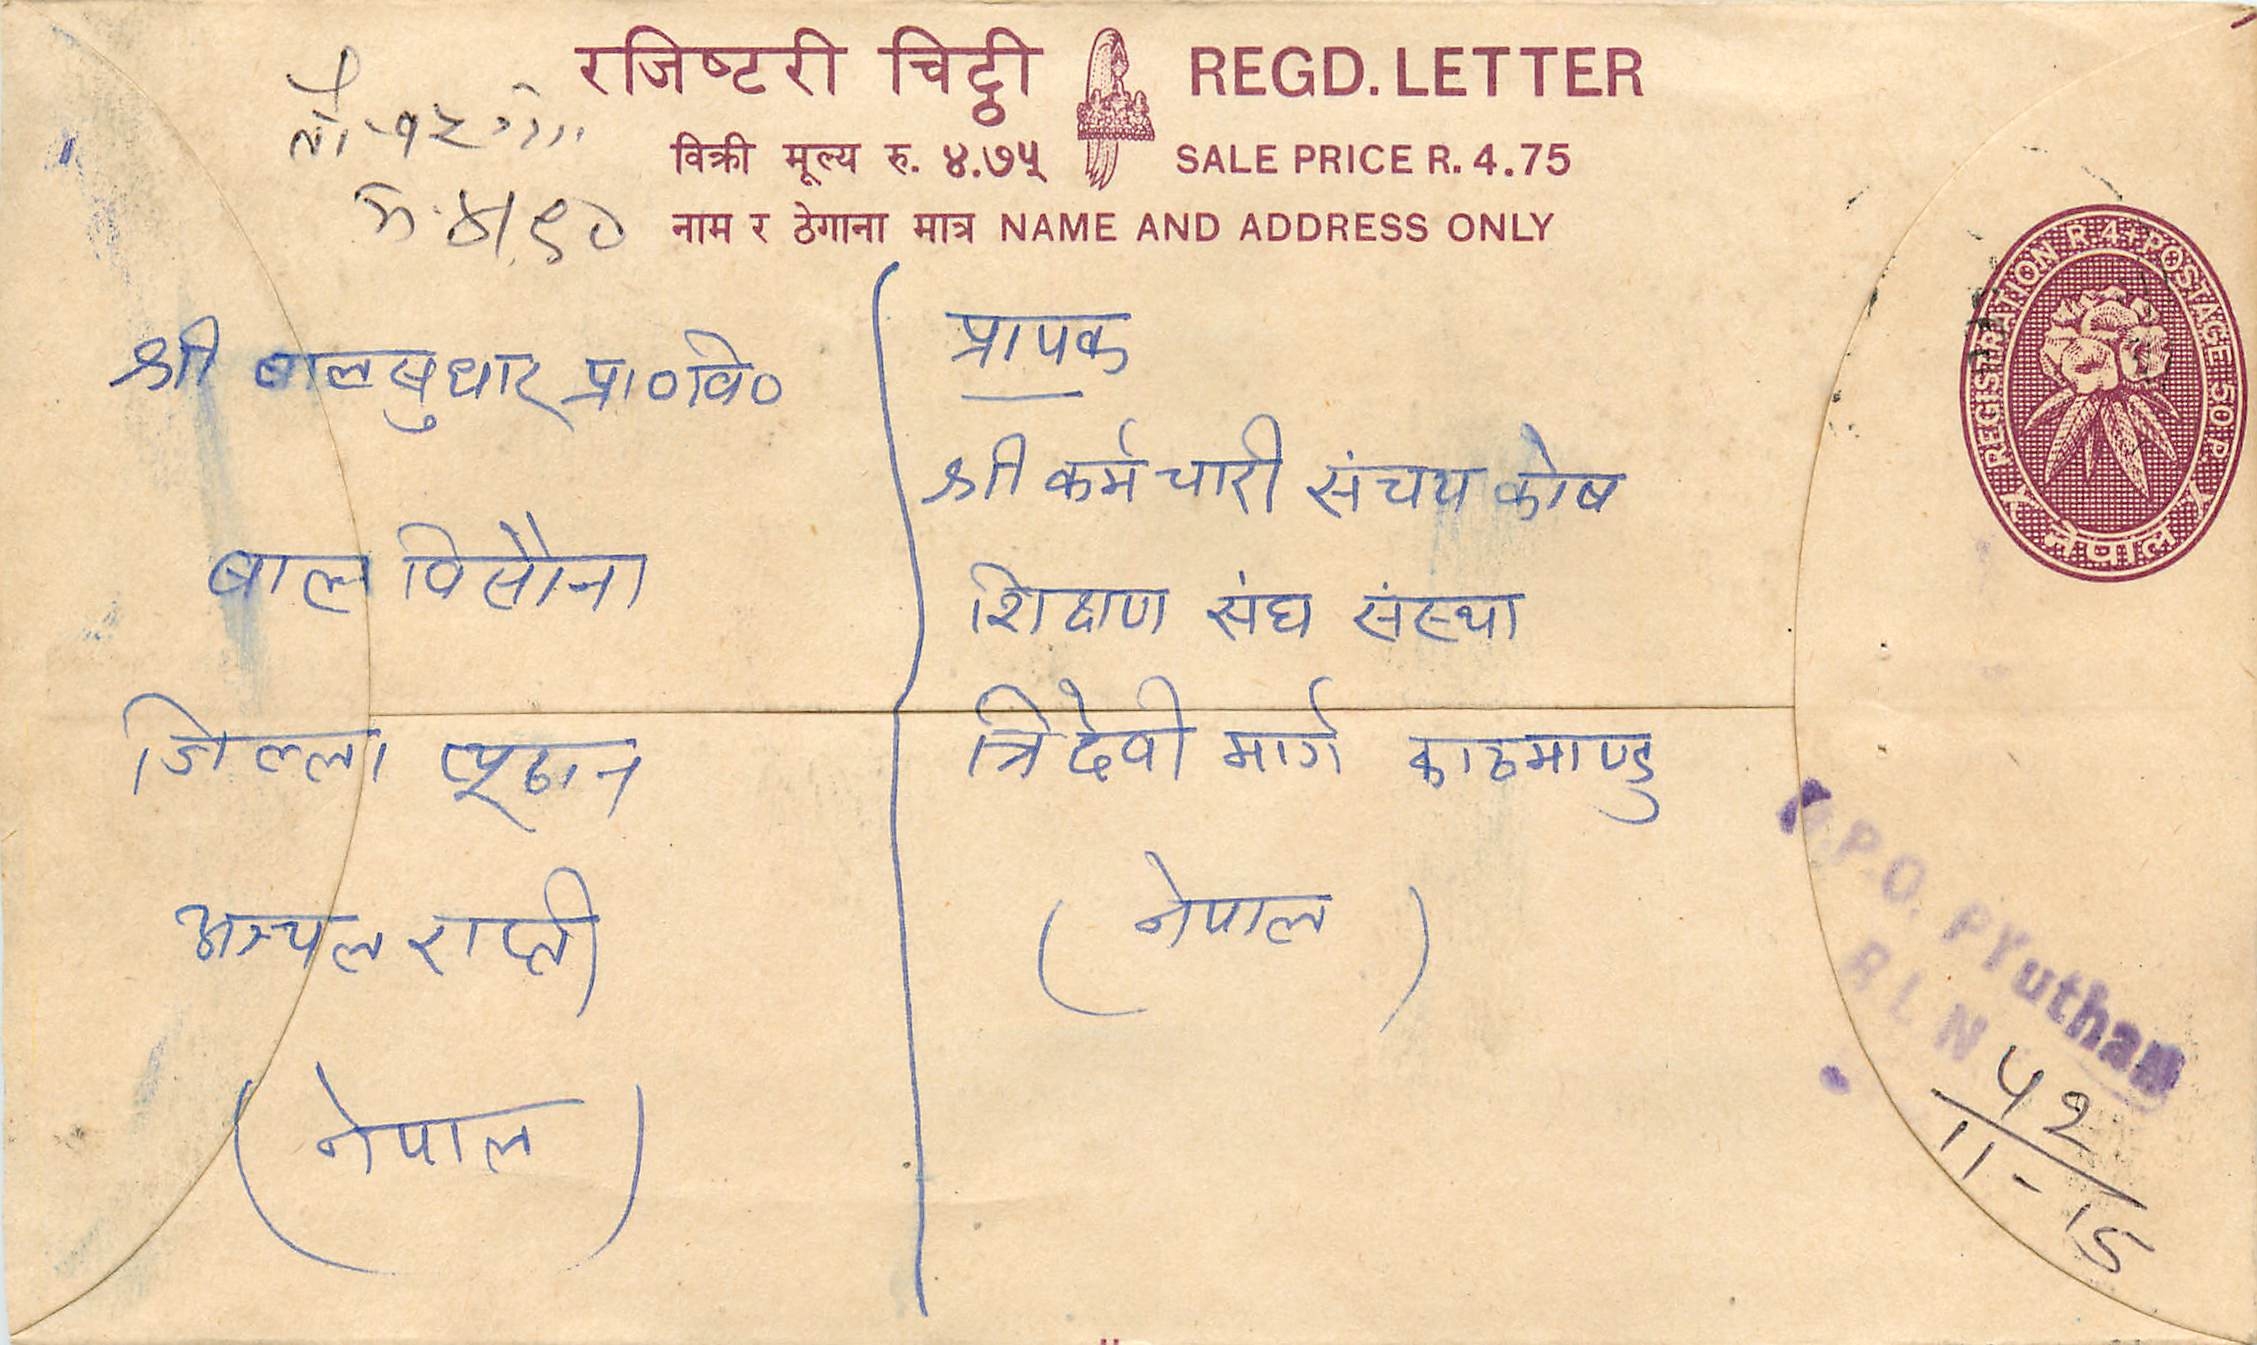 रजिष्टरी चिट्ठी REGD. LETTER
विक्री मूल्य रु. ४.७५ SALE PRICE R. 4.75
नाम र ठेगाना मात्र NAME AND ADDRESS ONLY
REGISTRATION R.4+POSTAGE 50 P.
नेपाल
श्री बालबुधार प्रा०वि०
बाल विसौना
जिल्ला प्यूठान
अञ्चल राप्ती
(नेपाल)
प्रापक
श्री कर्मचारी संचय कोष
शिक्षण संघ संस्था
त्रिदेवी मार्ग काठमाण्डु
(नेपाल)
P.O. PYuthan
R L N
५२
11-15